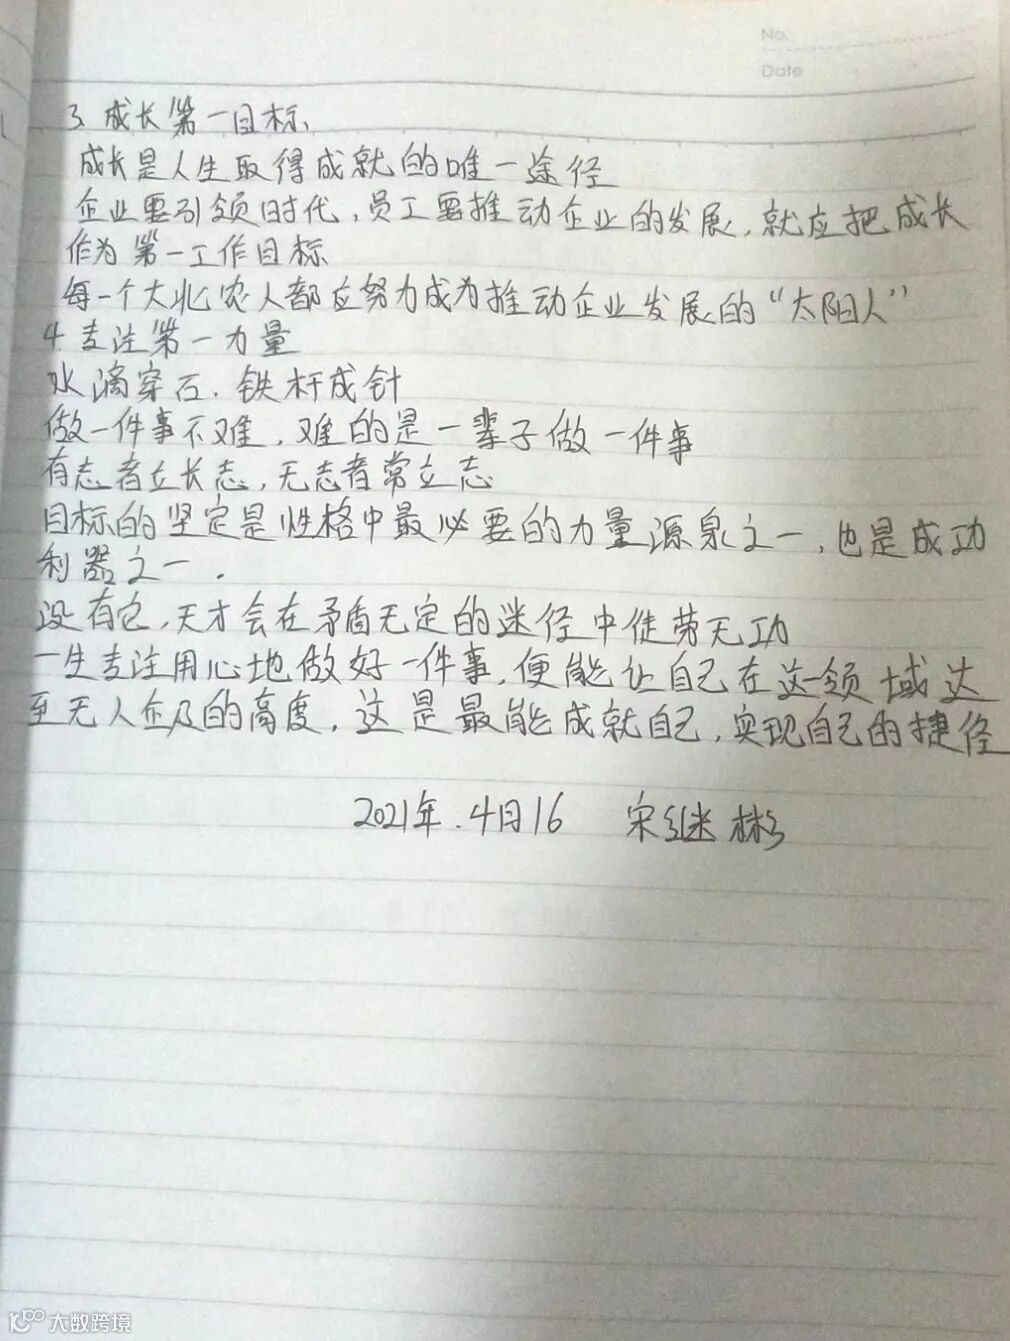 No.
Date
3. 成长第一目标、
成长是人生取得成就的唯一途径
企业要引领时代，员工要推动企业的发展，就应把成长
作为第一工作目标
每一个大北农人都应努力成为推动企业发展的“太阳人”
4. 专注第一力量
水滴穿石，铁杆成针
做一件事不难，难的是一辈子做一件事
有志者立长志，无志者常立志
目标的坚定是性格中最必要的力量源泉之一，也是成功
利器之一．
没有它，天才会在矛盾无定的迷径中徒劳无功
一生专注用心地做好一件事，便能让自己在这一领域达
至无人企及的高度，这是最能成就自己，实现自己的捷径
2021年．4月16 宋继彬
大数跨境